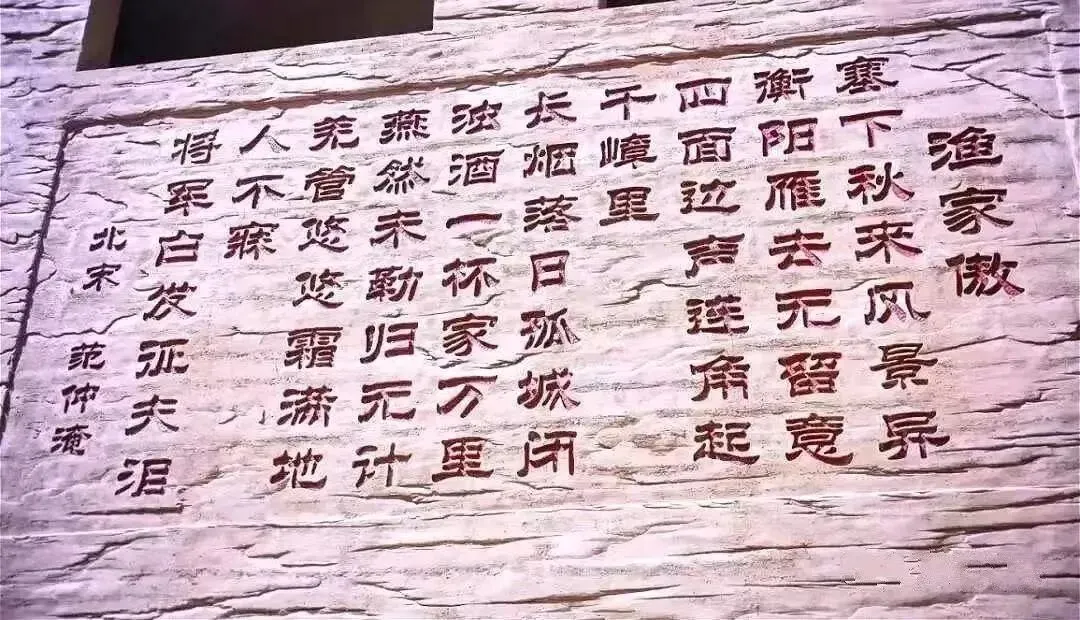 渔家傲
塞下秋来风景异
衡阳雁去无留意
四面边声连角起
千嶂里
长烟落日孤城闭
浊酒一杯家万里
燕然未勒归无计
羌管悠悠霜满地
人不寐
将军白发征夫泪
北宋
范仲淹